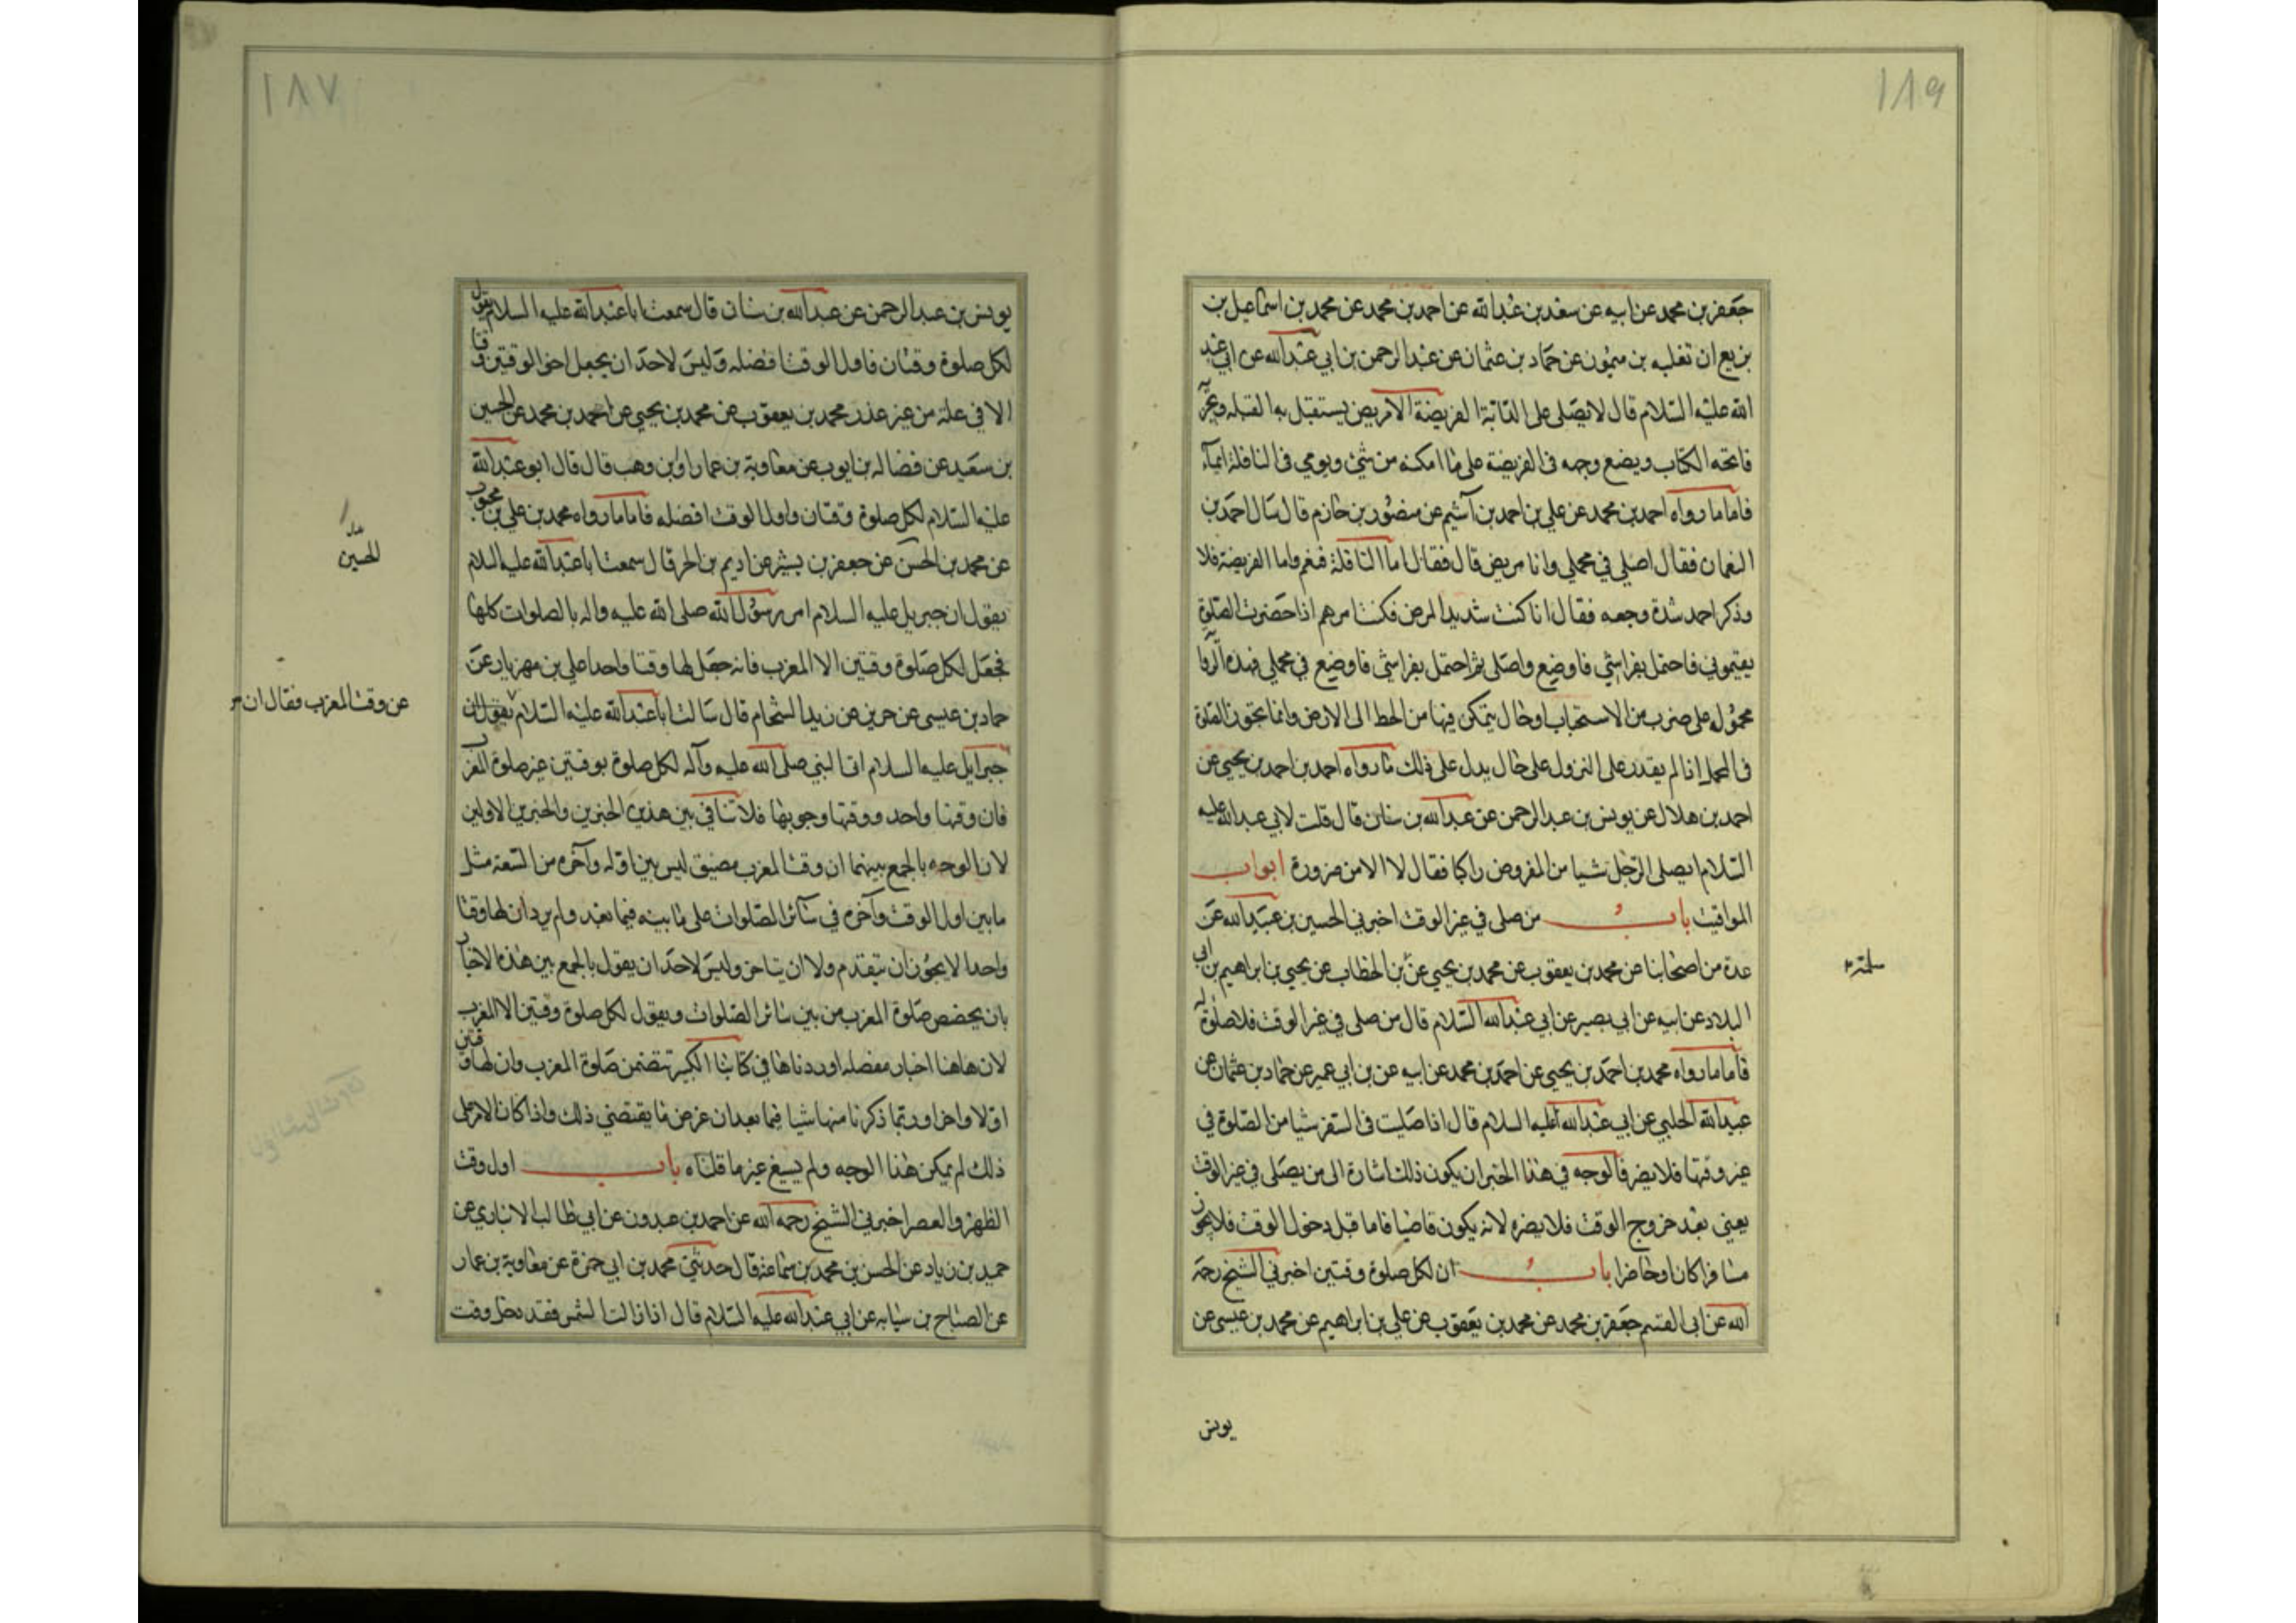 ١٨٩
جعفر بن محمد عن ابيه عن سعد بن عبد الله عن احمد بن محمد عن محمد بن اسماعيل بن
بزيع ان تغلبه بن ميمون عن حماد بن عثمان عن عبد الرحمن بن ابي عبد الله عن ابي عبد
الله عليه السلام قال لا يصلى على الدابة الفريضة الا مريض يستقبل به القبله ويجزيه
فاتحه الكتاب ويضع وجهه في الفريضة على ما امكنه من شئ ويومي في النافلة ايماء
فاما ما رواه احمد بن محمد عن علي بن احمد بن آشيم عن منصور بن حازم قال سال احمد بن
النعمان فقال اصلي في محملي وانا مريض قال فقال اما النافلة فنعم واما الفريضة فلا
وذكر احمد شدة وجعه فقال انا كنت شديد المرض فكنت امرهم اذا حضرت الصلوة
يقيموني فاحتمل بفراشي فاوضع واصلى ثم احتمل بفراشي فاوضع في محملي فهذه الروا
محموله على ضرب من الاستحباب او حال يتمكن فيها من الحط الى الارض وانما يجوز الصلوة
في المحمل اذا لم يقدر على النزول على حال يدل على ذلك ما رواه احمد بن احمد بن يحيى عن
احمد بن هلال عن يونس بن عبد الرحمن عن عبد الله بن سنان قال قلت لابي عبد الله عليه
السلام ايصلى الرجل شيا من المفروض راكبا فقال لا الا من ضرورة ابواب
المواقيت باب من صلى في غير الوقت اخبرني الحسين بن عبيد الله عن
عدة من اصحابنا عن محمد بن يعقوب عن محمد بن يحيى عن بن الخطاب عن يحيى بن ابراهيم بن ابي
سلمة
البلاد عن ابيه عن ابي بصير عن ابي عبد الله السلام قال من صلى في غير الوقت فلا صلوة له
فاما ما رواه محمد بن احمد بن يحيى عن احمد بن محمد عن ابيه عن بن ابي عمير عن حماد بن عثمان عن
عبيد الله الحلبي عن ابي عبد الله عليه السلام قال اذا صليت في السفر شيا من الصلوة في
غير وقتها فلا يضر فالوجه في هذا الخبر ان يكون ذلك اشارة الى من يصلى في غير الوقت
يعني بعد خروج الوقت فلا يضره لانه يكون قاضيا فاما قبل دخول الوقت فلا يجوز
مسافرا كان او حاضرا باب ان لكل صلوة وقتين اخبرني الشيخ رحمه
الله عن ابي القسم جعفر بن محمد عن محمد بن يعقوب عن علي بن ابراهيم عن محمد بن عيسى عن
يونس
١٨٧
يونس بن عبد الرحمن عن عبد الله بن سنان قال سمعت ابا عبد الله عليه السلام يقول
لكل صلوة وقتان فاول الوقت افضله وليس لاحد ان يجعل اخر الوقتين وقتا
الا في علة من غير عذر محمد بن يعقوب عن محمد بن يحيى عن احمد بن محمد عن الحسين
بن سعيد عن فضاله بن ايوب عن معاوية بن عمار او بن وهب قال قال ابو عبد الله
عليه السلام لكل صلوة وقتان واول الوقت افضله فاما ما رواه محمد بن علي بن محبوب
عن محمد بن الحسن عن جعفر بن بشير عن اديم بن الحر قال سمعت ابا عبد الله عليه السلام
الحسين
يقول ان جبريل عليه السلام امر رسول الله صلى الله عليه واله بالصلوات كلها
فجعل لكل صلوة وقتين الا المغرب فانه جعل لها وقتا واحدا علي بن مهزيار عن
حماد بن عيسى عن حريز عن زيد الشحام قال سالت ابا عبد الله عليه السلام يقول ان
عن وقت المغرب فقال ان
جبرايل عليه السلام اتى النبي صلى الله عليه وآله لكل صلوة بوقتين غير صلوة المغرب
فان وقتها واحد ووقتها وجوبها فلا تنافي بين هذين الخبرين والخبرين الاولين
لان الوجه بالجمع بينهما ان وقت المغرب مضيق ليس بين اوله وآخره من السعة مثل
ما بين اول الوقت وآخره في سائر الصلوات على ما بينه فيما بعد ولم يرد ان لها وقتا
واحدا لا يجوز ان يتقدم ولا ان يتاخر وليس لاحد ان يقول بالجمع بين هذه الاخبار
بان يخصص صلوة المغرب من بين سائر الصلوات ويقول لكل صلوة وقتين الا المغرب
لان هاهنا اخبار مفصله اوردناها في كتابنا الكبير تتضمن صلوة المغرب وان لها وقتين
اولا واخرا وربما ذكرنا منها شيا فيما بعد ان عرض ما يقتضي ذلك واذا كان الامر على
ذلك لم يمكن هذا الوجه ولم يسغ غير ما قلناه باب اول وقت
الظهر والعصر اخبرني الشيخ رحمه الله عن احمد بن عبدون عن ابي طالب الانباري عن
حميد بن زياد عن الحسن بن محمد بن سماعة قال حدثني محمد بن ابي حمزة عن معاوية بن عمار
عن الصباح بن سيابه عن ابي عبد الله عليه السلام قال اذا زالت الشمس فقد دخل وقت